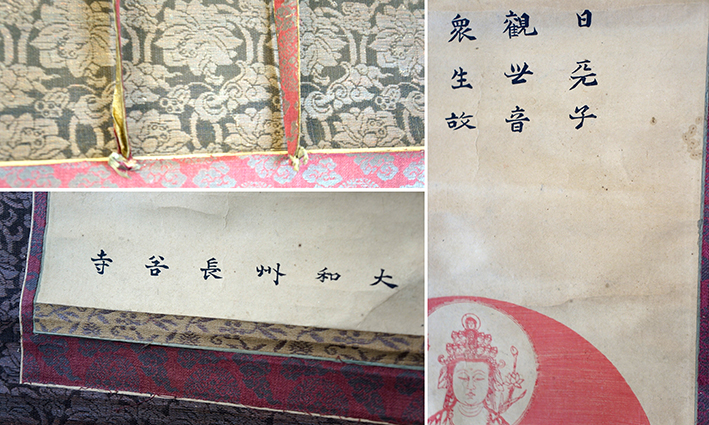 日天子
觀世音
衆生故
大和州長谷寺